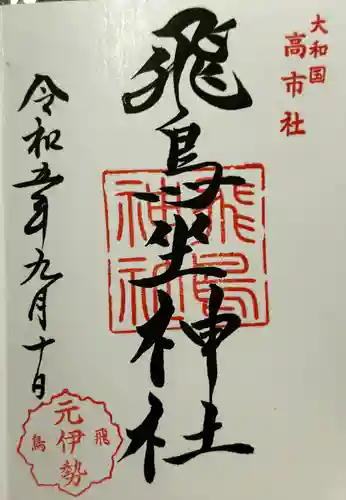 大和国
高市社
飛鳥坐神社
飛鳥
神社
令和五年九月十日
元伊勢
飛鳥